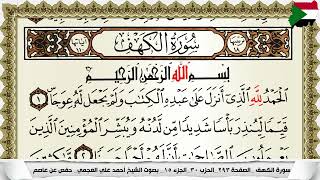 سُورَةُ الكَهْفِ
بِسْمِ اللَّهِ الرَّحْمَٰنِ الرَّحِيمِ
الْحَمْدُ لِلَّهِ الَّذِي أَنزَلَ عَلَىٰ عَبْدِهِ الْكِتَابَ وَلَمْ يَجْعَل لَّهُ عِوَجًا ۜ ١
قَيِّمًا لِّيُنذِرَ بَأْسًا شَدِيدًا مِّن لَّدُنْهُ وَيُبَشِّرَ الْمُؤْمِنِينَ الَّذِينَ
سورة الكهف الصفحة ٢٩٣ الحزب ٣٠ الجزء ١٥ بصوت الشيخ أحمد علي العجمي حفص عن عاصم